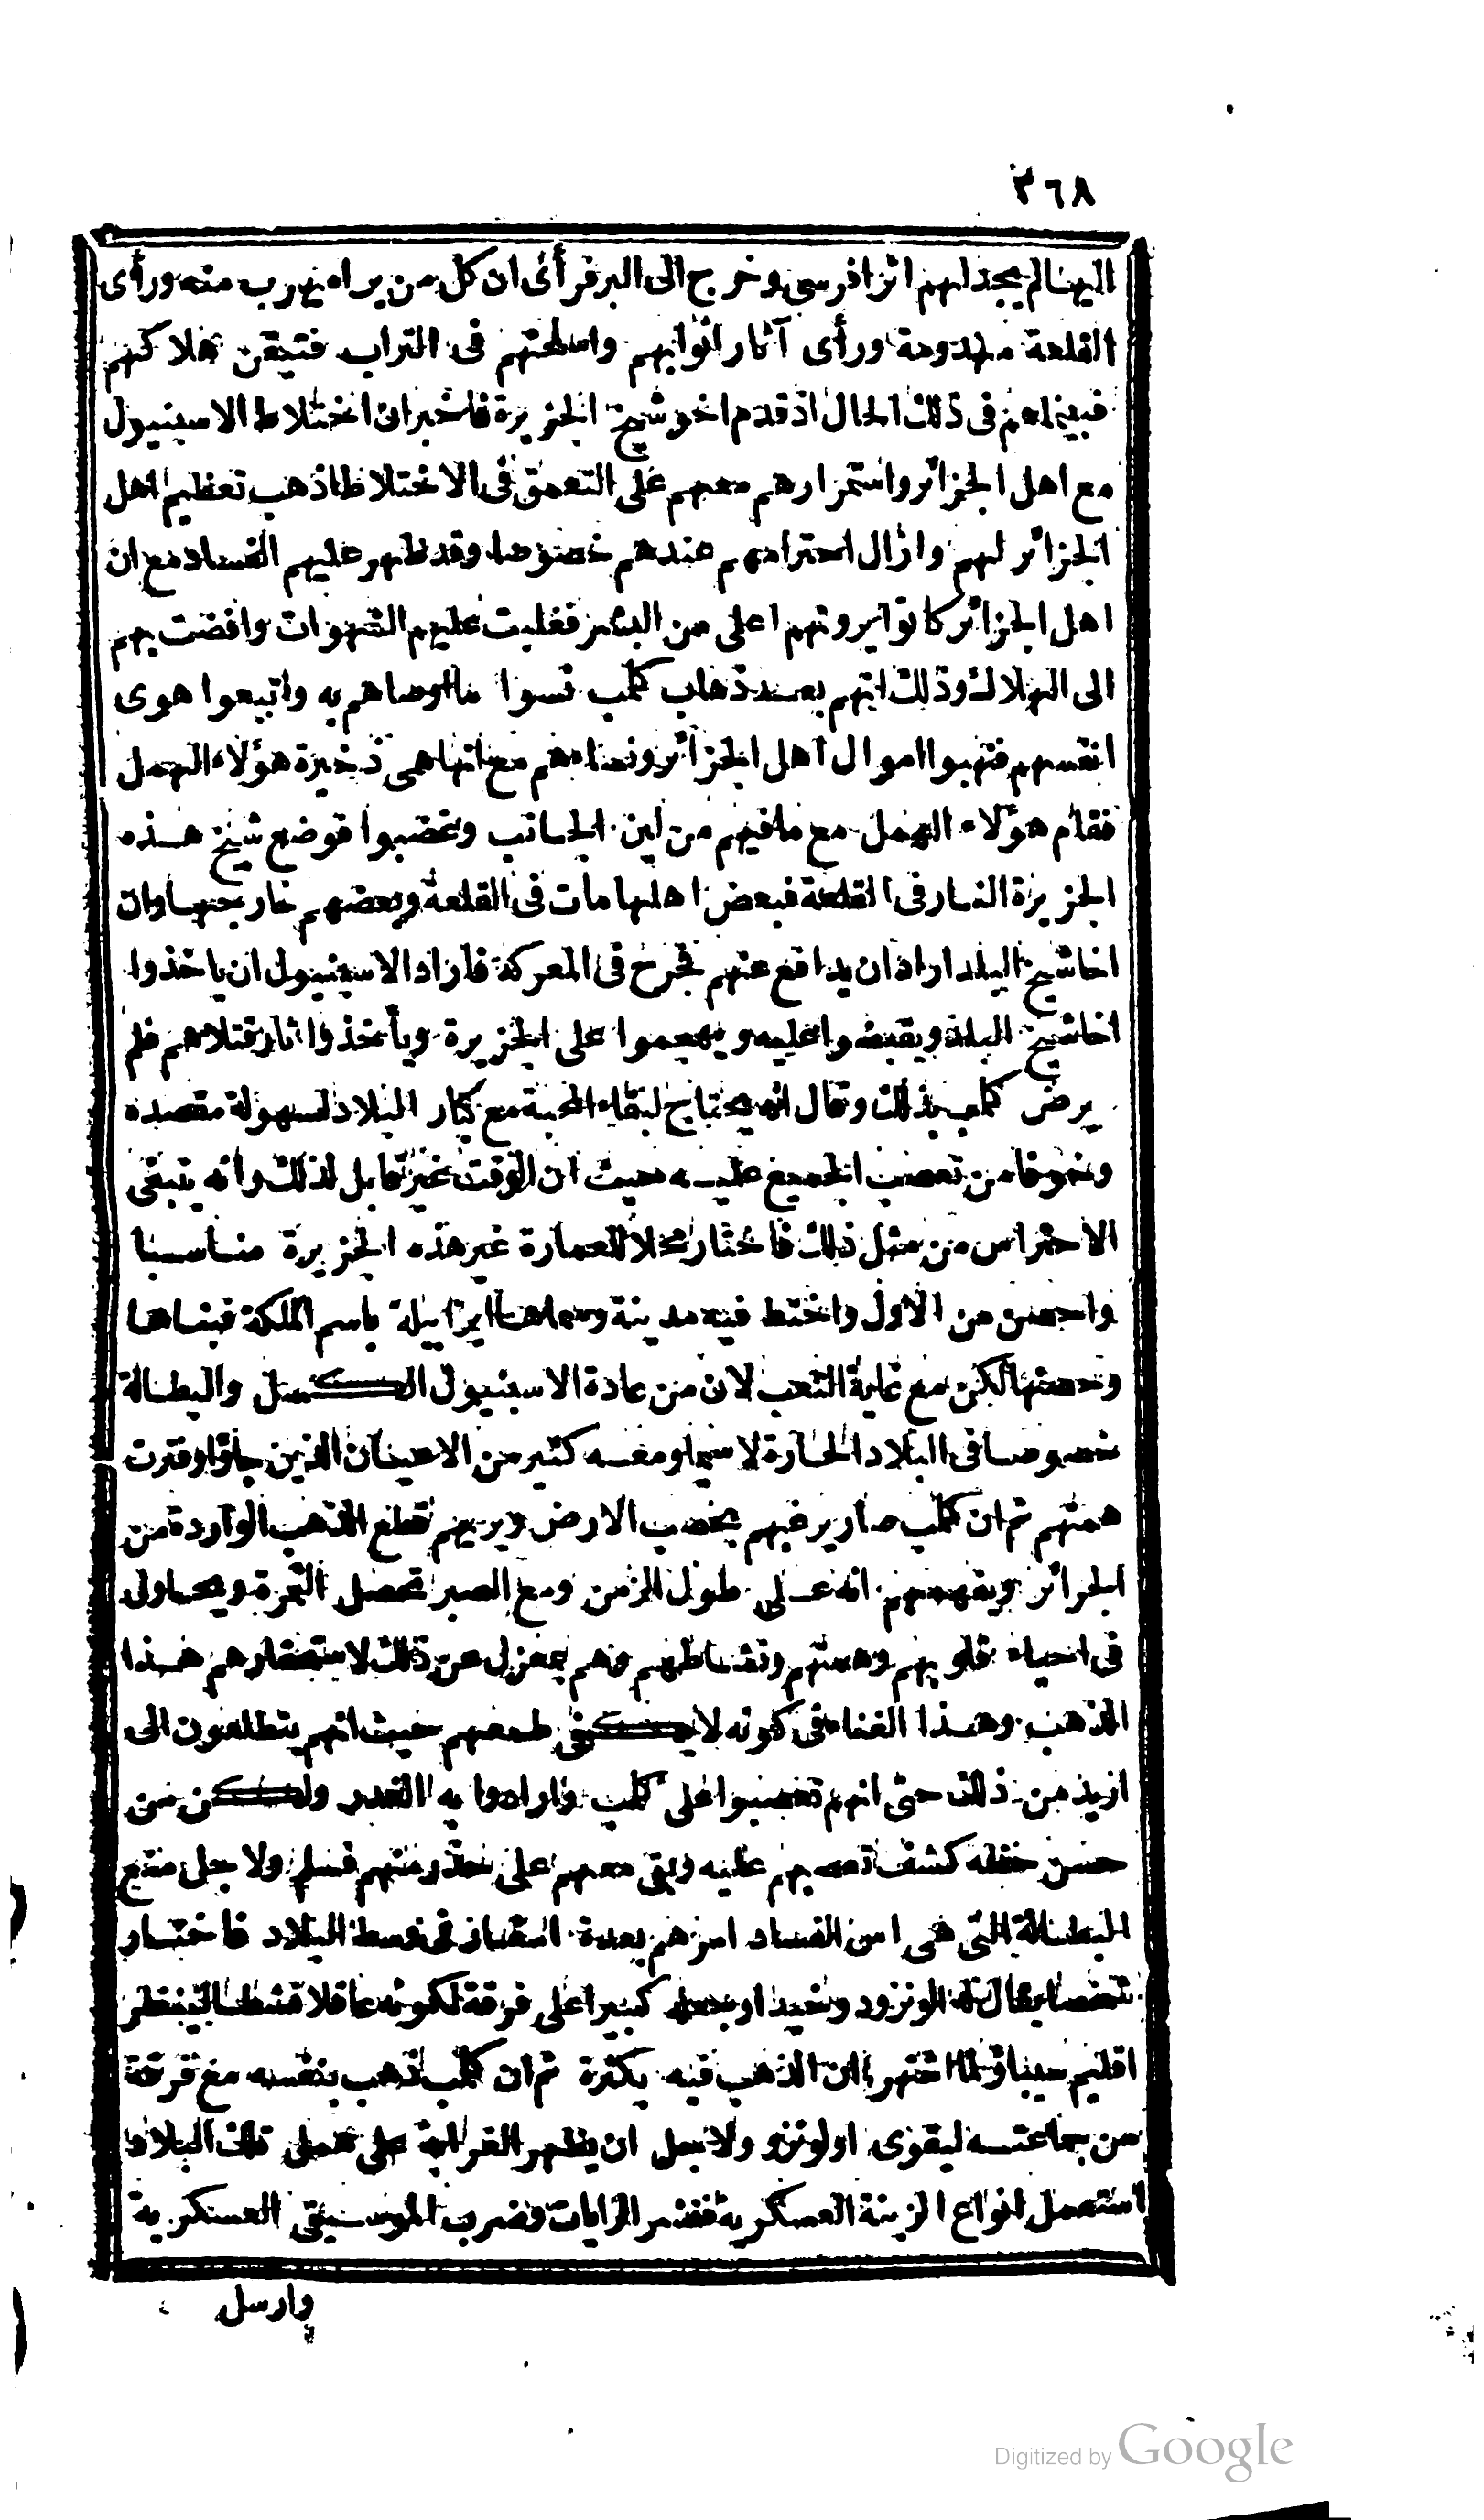 ٣٦٨
اليها لم يجد لهم اثرا فرسى وخرج الى البر فرأى ان كل من يراه يهرب منه ورأى
القلعة مهدومة ورأى آثار اثوابهم واسلحتهم فى التراب فتيقن هلاكهم
فبينما هم فى ذلك الحال اذ قدم اخو شيخ الجزيرة فاخبر ان اختلاط الاسبنيول
مع اهل الجزائر واستمرارهم معهم على التعمق فى الاختلاط اذهب تعظيم اهل
الجزائر لهم وازال احترامهم عندهم خصوصا وقد ظهر عليهم الفساد مع ان
اهل الجزائر كانوا يرونهم اعلى من البشر فغلبت عليهم الشهوات وافضت بهم
الى الهلاك وذلك انهم بعد ذهاب كلمب نسوا ما اوصاهم به واتبعوا هوى
انفسهم فنهبوا اموال اهل الجزائر ونساءهم مع انها هى ذخيرة هؤلاء الهمل
فقام هؤلاء الهمل مع ما فيهم من لين الجانب وغضبوا فوضع شيخ هذه
الجزيرة النار فى القلعة فبعض اهلها مات فى القلعة وبعضهم خارجها وان
اخا شيخ البلد اراد ان يدافع عنهم فجرح فى المعركة فاراد الاسبنيول ان ياخذوا
اخا شيخ البلد ويقبضوا عليه ويهجموا على الجزيرة ويأخذوا ثار قتلاهم فلم
يرض كلمب بذلك وقال انه يحتاج لبقاء المحبة مع كبار البلاد لسهولة مقصده
وخوفا من تعصب الجميع عليه حيث ان الوقت غير قابل لذلك وانه ينبغى
الاحتراس من مثل ذلك فاختار محلا للعمارة غير هذه الجزيرة مناسبا
واحسن من الاول واختط فيه مدينة وسماها ايزابيلة باسم الملكة فبناها
وحصنها لكن مع غاية التعب لان من عادة الاسبنيول الكسل والبطالة
خصوصا فى البلاد الحارة لاسيما ومعه كثير من الاعيان الذين جاؤا وفترت
همتهم ثم ان كلمب صار يرغبهم بخصب الارض ويريهم قطع الذهب الواردة من
الجزائر ويفهمهم انه على طول الزمن ومع الصبر تحصل الثمرة ويحاول
فى احياء قلوبهم وهمتهم ونشاطهم وهم بمعزل عن ذلك لاستحقارهم هذا
الذهب وهذا الغناء فى كونه لا يكفى طمعهم حيث انهم يتطلعون الى
ازيد من ذلك حتى انهم تعصبوا على كلمب وارادوا به الغدر ولكن من
حسن حظه كشف تعصبهم عليه وبقى معهم على حذر منهم فسلم ولاجل منع
البطالة التى هى اس الفساد امرهم بعدة اسفار فى وسط البلاد فاختار
شخصا يقال له الونزو دوخيدا وجعله كبيرا على فرقة لكونه عاقلا نشطا لينظر
اقليم سيباو لما اشتهر ان الذهب فيه بكثرة ثم ان كلمب ذهب بنفسه مع فرقة
من جماعته ليقوى اولونزو ولاجل ان يظهر الغرابة على همل تلك البلاد
استعمل انواع الزينة العسكرية فنشر الرايات وضرب الموسيقى العسكرية
وارسل
Digitized by Google